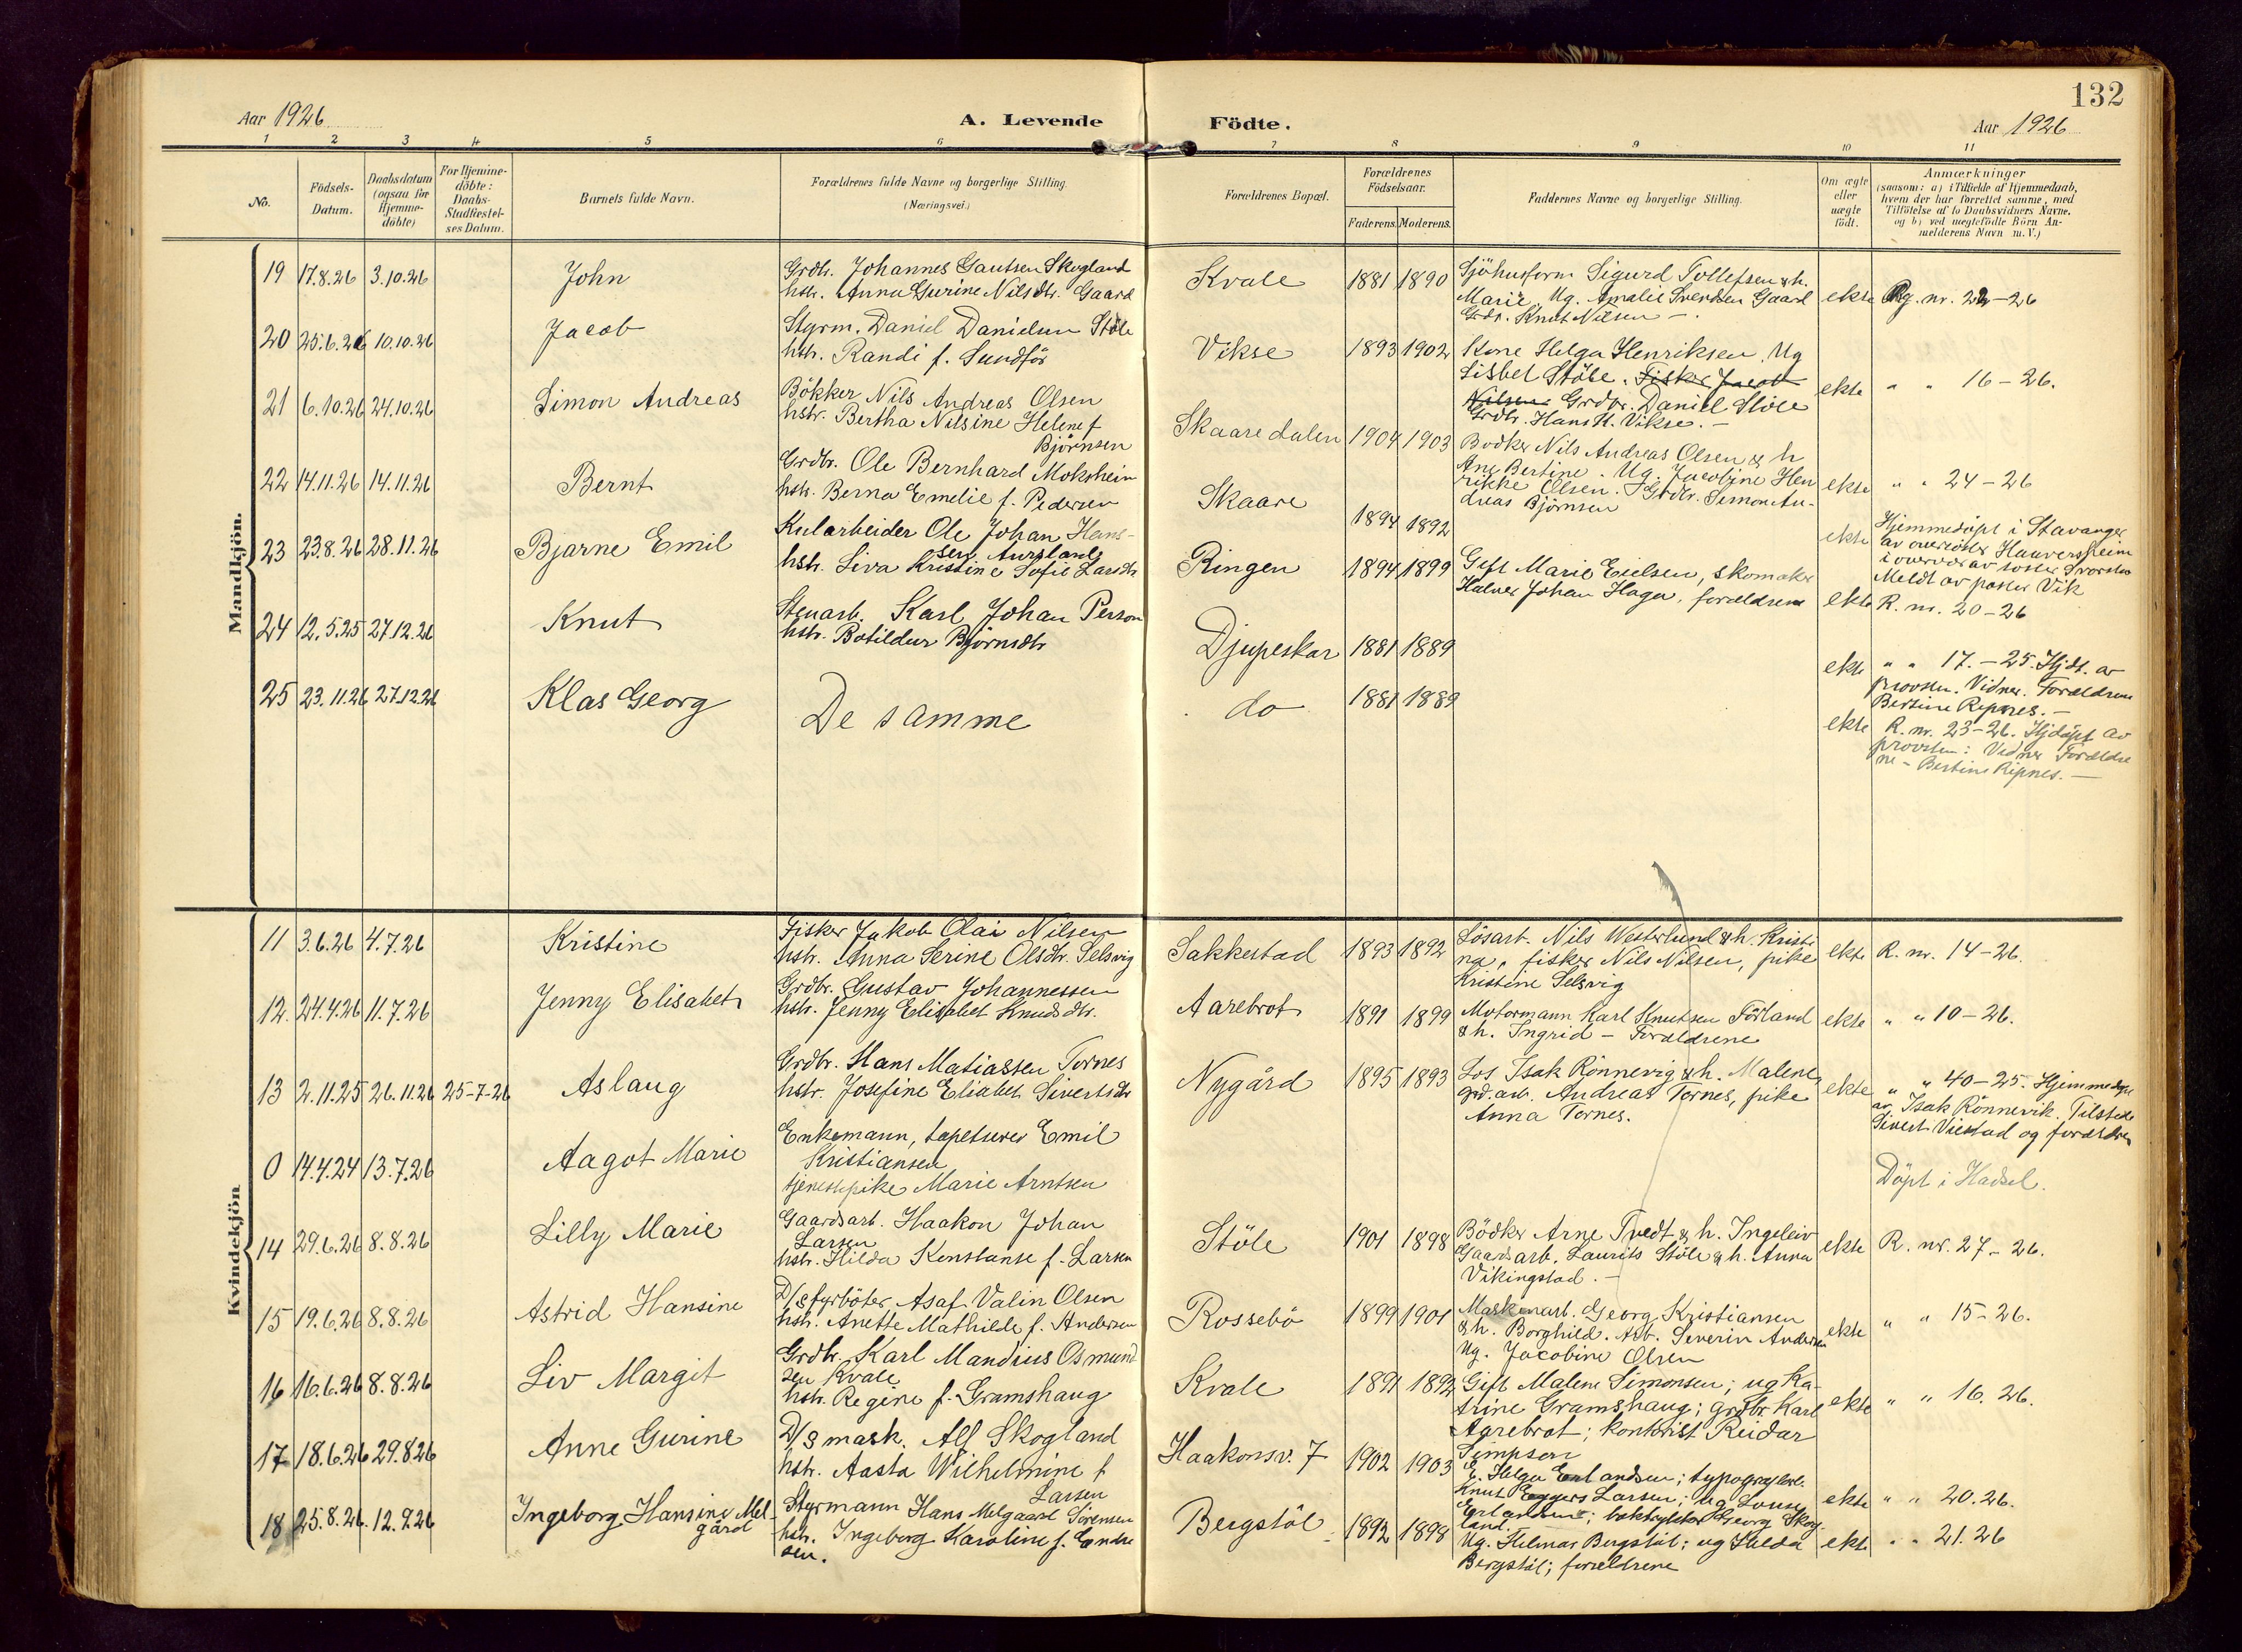 132
Aar 1926
A. Levende Födte.
Aar 1926
1 2 3 4 5 6 7 8 9 10 11
No.
Födsels-
Datum.
Daabsdatum
(ogsaa for
Hjemme-
döbte)
For Hjemme-
döbte:
Daabs-
Stadfæstel-
ses Datum.
Barnets fulde Navn.
Forældrenes fulde Navne og borgerlige Stilling.
(Næringsvei.)
Forældrenes Bopæl.
Forældrenes
Födselsaar.
Faderens. Moderens.
Faddernes Navne og borgerlige Stilling.
Om ægte
eller
uægte
födt.
Anmærkninger
(saasom: a) i Tilfælde af Hjemmedaab,
hvem der har forrettet samme, med
Tilföielse af to Daabsvidners Navne,
og b) ved uægtefödte Börn An-
melderens Navn m. V.)
Mandkjön.
19 17.8.26 3.10.26 John
Grdbr. Johannes Gautsen Skogland
hstr. Anna Gurine Nilsdtr. Gaard
Kvale 1881 1890
Sjöhusform Sigurd Tollefsen & h.
Marie. Ug. Amalie Svendsen Gaard
Grdr. Knut Nilsen -
ekte Rg. nr. 22-26
20 25.6.26 10.10.26 Jacob
Styrm. Daniel Danielsen Stöle
hstr. Randi f. Sundför
Vikse 1893 1902
Kone Helga Henriksen, Ug
Lisbet Stöle. Fisker Jacob
Nilsen. Grdbr. Daniel Stöle
Grdbr. Hans H. Vikse. -
ekte " " 16-26.
21 6.10.26 24.10.26 Simon Andreas
Bökker Nils Andreas Olsen
hstr. Bertha Nilsine Helene f
Björnsen
Skaaredalen 1904 1903
Bödker Nils Andreas Olsen & h
Ane Bertine. Ug. Jacobine Hen
rikke Olsen. Grdbr. Simon An-
dreas Björnsen
ekte " " 24-26
22 14.11.26 14.11.26 Bernt
Grdbr. Ole Bernhard Moksheim
hstr. Berna Emelie f. Pedersen
Skaare 1894 1892
ekte Hjemmedöpt i Stavanger
av
i overvær av söster
Meldt av pastor Vik
23 23.8.26 28.11.26 Bjarne Emil
Kularbeider Ole Johan Hans-
sen Aursland
hstr. Liva Kristine Sofie Larsdtr
Ringen 1894 1899
Gift Marie Eielsen, skomaker
Halver Johan Haga, forældrene
ekte R. nr. 20-26
24 12.5.25 27.12.26 Knut
Stenarb. Karl Johan Person
hstr. Botildur Björnsdtr
Djupeskar 1881 1889
ekte " " 17.-25. Hjdt. av
provsten. Vidner. Forældrene
Bertine Ripnes. -
25 23.11.26 27.12.26 Klas Georg
De samme
do 1881 1889
ekte R. nr. 23-26. Hjdöpt av
provsten: Vidner Forældre
ne - Bertine Ripnes. -
Kvindekjön
11 3.6.26 4.7.26 Kristine
Fisker Jakob Olai Nilsen
hstr. Anna Serine Olsdtr. Selsvig
Sakkestad 1893 1892
Lösarb. Nils Westerlund & h. Kristi
na, fisker Nils Nilsen, pike
Kristine Selsvig
ekte R. nr. 14-26.
12. 24.4.26 11.7.26 Jenny Elisabet
Grdbr. Gustav Johannessen
hstr. Jenny Elisabet Knudsdtr.
Aarebrot 1891 1899
Motormann Karl Knutsen Förland
& h. Ingrid - Forældrene
ekte " " 10-26.
13 2.11.25 26.11.26 25-7-26 Aslaug
Grdbr. Hans Matiassen Tornes
hstr. Josefine Eliabet Sivertsdtr
Nygård 1895 1893
Los Isak Rönnevig & h. Malene,
grd.arb. Andreas Tornes, pike
Anna Tornes.
ekte " " 40-25. Hjemmedöpt
av Isak Rönnevik. Tilstede
Sivert Viestad og forældrene
0 14.4.24 13.7.26 Aagot Marie
Enkemann, tapetserer Emil
Kristiansen
tjenestepike Marie Arntsen
Döpt i Hadsel.
14 29.6.26 8.8.26 Lilly Marie
Gaardsarb. Haakon Johan
Larsen
hstr. Hilda Konstanse f. Larsen
Stöle 1901 1898
Bödker Arne Tvedt & h. Ingeleiv
Gaardsarb. Laurits Stöle & h. Anna
Vikingstad. -
ekte R. nr. 27-26.
15 19.6.26 8.8.26 Astrid Hansine
D/s fyrböter Asaf Valin Olsen
hstr. Anette Mathilde f. Andersen
Rossebö 1899 1901
Maskinarb. Georg Kristiansen
& h. Borghild. Arb. Severin Andersen
Ug. Jacobine Olsen
ekte " " 15-26.
16 16.6.26 8.8.26 Liv Margit
Grdbr. Karl Mandius Osmund
sen Kvale
hstr. Regine f. Gramshaug
Kvale 1891 1892
Gift Malene Simonsen; ug Ka-
trine Gramshaug; grdbr. Karl
Aarebrot; kontorist Reidar
Simpson
ekte " " 16.26.
17 18.6.26 29.8.26 Anne Gurine
D/s mask. Alf Skogland
hstr. Aasta Wilhelmine f
Larsen
Haakonsv. 7 1902 1903
E. Helga Erlandsen; typograf
Knut Eggers Larsen; Ug Louise
Erlandsen; boktrykker Georg Skog
land.
ekte " " 20.26.
18 25.8.26. 12.9.26 Ingeborg Hansine Mel-
gård
Styrmann Hans Melgaard Sörensen
hstr. Ingeborg Karoline f. Endre
sen.
Bergstöl 1892 1898
Ug. Helmar Bergstöl; ug Hilda
Bergstöl; forældrene
ekte " " 21.26